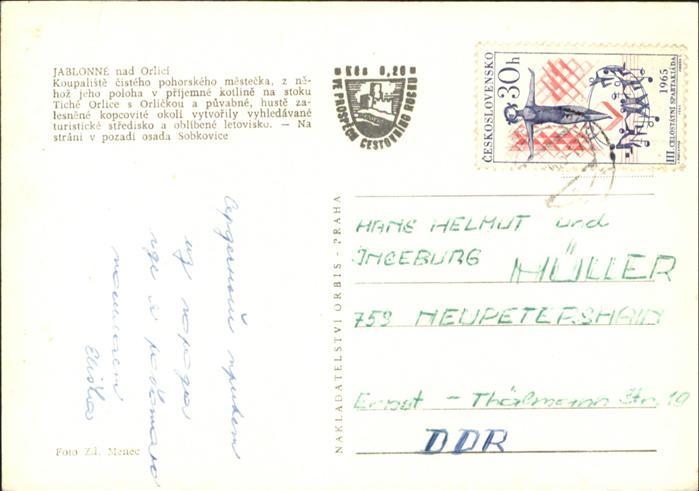 JABLONNÉ nad Orlicí
Koupaliště čistého pohorského městečka, z ně-
hož jeho poloha v příjemné kotlině na stoku
Tiché Orlice s Orličkou a půvabné, hustě za-
lesněné kopcovité okolí vytvořily vyhledávané
turistické středisko a oblíbené letovisko. — Na
stráni v pozadí osada Sobkovice
Kčs 0,20
VE PROSPĚCH CESTOVNÍHO RUCHU
ČESKOSLOVENSKO
30h
III. CELOSTÁTNÍ SPARTAKIÁDA
1965
Сердечный привет
из города
где я работаю
посылает
Eliška
NAKLADATELSTVÍ ORBIS - PRAHA
HANS HELMUT und
INGEBURG MÜLLER
759 NEUPETERSHAIN
Ernst - Thälmann Str. 19
DDR
Foto Zd. Menec